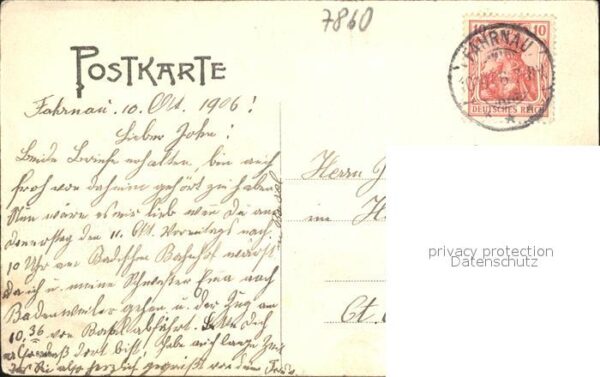 7860
POSTKARTE
10 10
FAHRNAU
DEUTSCHES REICH
Fahrnau. 10. Okt. 1906!
Lieber John!
Beide Briefe erhalten, bin auch
froh von daheim gehört zu haben
Nun wäre es mir lieb wenn Du am
Donnerstag den 11. Okt. Vormittags nach
10 Uhr am Badischen Bahnhof wärst,
da ich u. meine Schwester Emma nach
Badenweiler gehen u. der Zug um
10.36 von Basel abfährt.
daß dort bist,
also herzlich gegrüßt von
Basel
Herrn J
im H
Ct.
privacy protection
Datenschutz